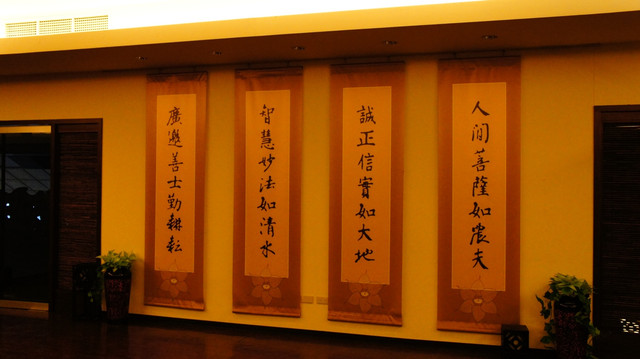 人間菩薩如農夫
誠正信實如大地
智慧妙法如清水
廣邀善士勤耕耘